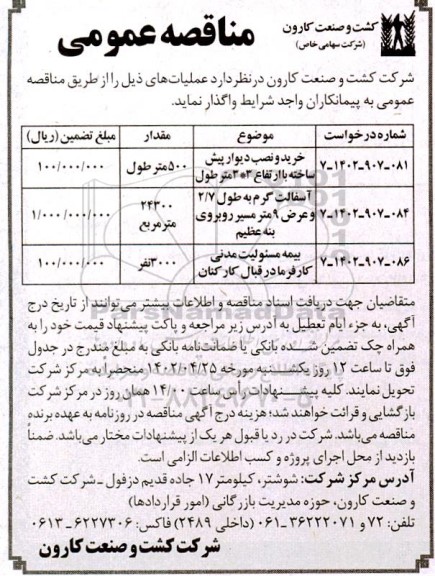 کشت و صنعت کارون
(شرکت سهامی خاص)
مناقصه عمومی
شرکت کشت و صنعت کارون درنظر دارد عملیات‌های ذیل را از طریق مناقصه
عمومی به پیمانکاران واجد شرایط واگذار نماید.
شماره درخواست موضوع مقدار مبلغ تضمین (ریال)
۷-۱۴۰۲-۹۰۷-۰۸۱ خرید و نصب دیوار پیش ساخته با ارتفاع ۳*۳ متر طول ۵۰۰ متر طول ۱۰۰/۰۰۰/۰۰۰
۷-۱۴۰۲-۹۰۷-۰۸۴ آسفالت گرم به طول ۲/۷ و عرض ۹ متر مسیر روبروی بنه عظیم ۲۴۳۰۰ مترمربع ۱/۰۰۰/۰۰۰/۰۰۰
۷-۱۴۰۲-۹۰۷-۰۸۶ بیمه مسئولیت مدنی کارفرما در قبال کارکنان ۳۰۰۰ نفر ۱۰۰/۰۰۰/۰۰۰
متقاضیان جهت دریافت اسناد مناقصه و اطلاعات بیشتر می‌توانند از تاریخ درج
آگهی، به جزء ایام تعطیل به آدرس زیر مراجعه و پاکت پیشنهاد قیمت خود را به
همراه چک تضمین شده بانکی یا ضمانت‌نامه بانکی به مبلغ مندرج در جدول
فوق تا ساعت ۱۲ روز یکشنبه مورخه ۱۴۰۲/۰۴/۲۵ منحصراً به مرکز شرکت
تحویل نمایند. کلیه پیشنهادات رأس ساعت ۱۴/۰۰ همان روز در مرکز شرکت
بازگشایی و قرائت خواهند شد؛ هزینه درج آگهی مناقصه در روزنامه به عهده برنده
مناقصه می‌باشد. شرکت در رد یا قبول هر یک از پیشنهادات مختار می‌باشد. ضمناً
بازدید از محل اجرای پروژه و کسب اطلاعات الزامی است.
آدرس مرکز شرکت: شوشتر، کیلومتر ۱۷ جاده قدیم دزفول - شرکت کشت
و صنعت کارون، حوزه مدیریت بازرگانی (امور قراردادها)
تلفن: ۷۲ و ۳۶۲۲۲۰۷۱-۰۶۱ (داخلی ۲۴۸۹) فاکس: ۶۲۲۷۳۰۶-۰۶۱۳
شرکت کشت و صنعت کارون